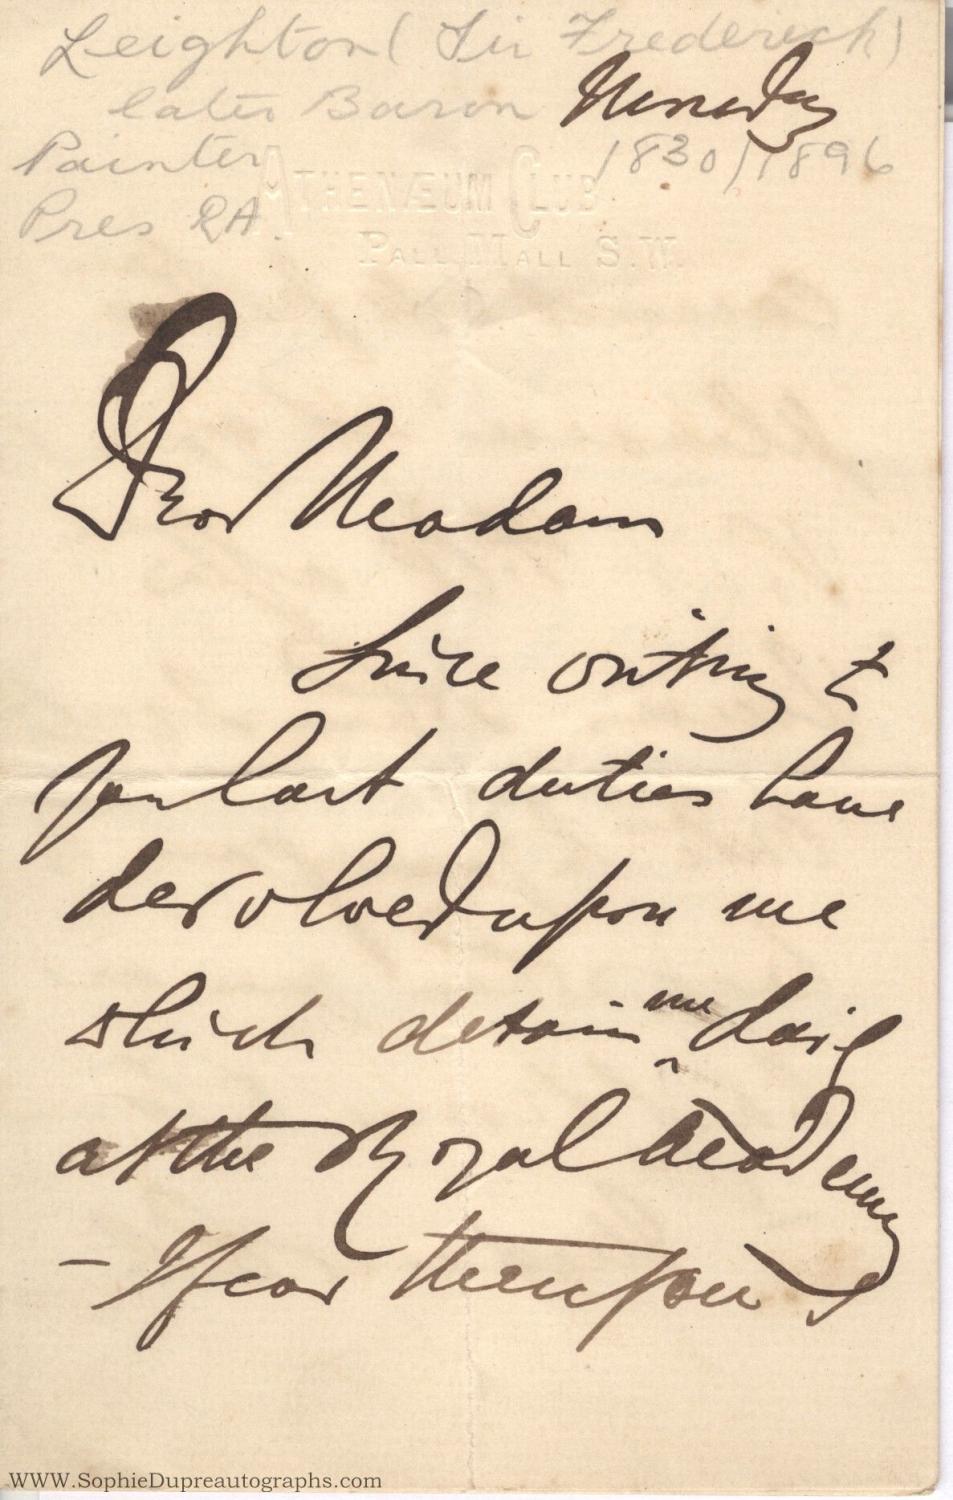 Leighton (Sir Frederick)
later Baron
Painter 1830/1896
Pres RA.
ATHENÆUM CLUB
PALL MALL S.W.
Dear Madam
Since writing to
you last duties have
devolved upon me
which detain me daily
at the Royal Academy
– I fear therefore I
WWW.SophieDupreautographs.com